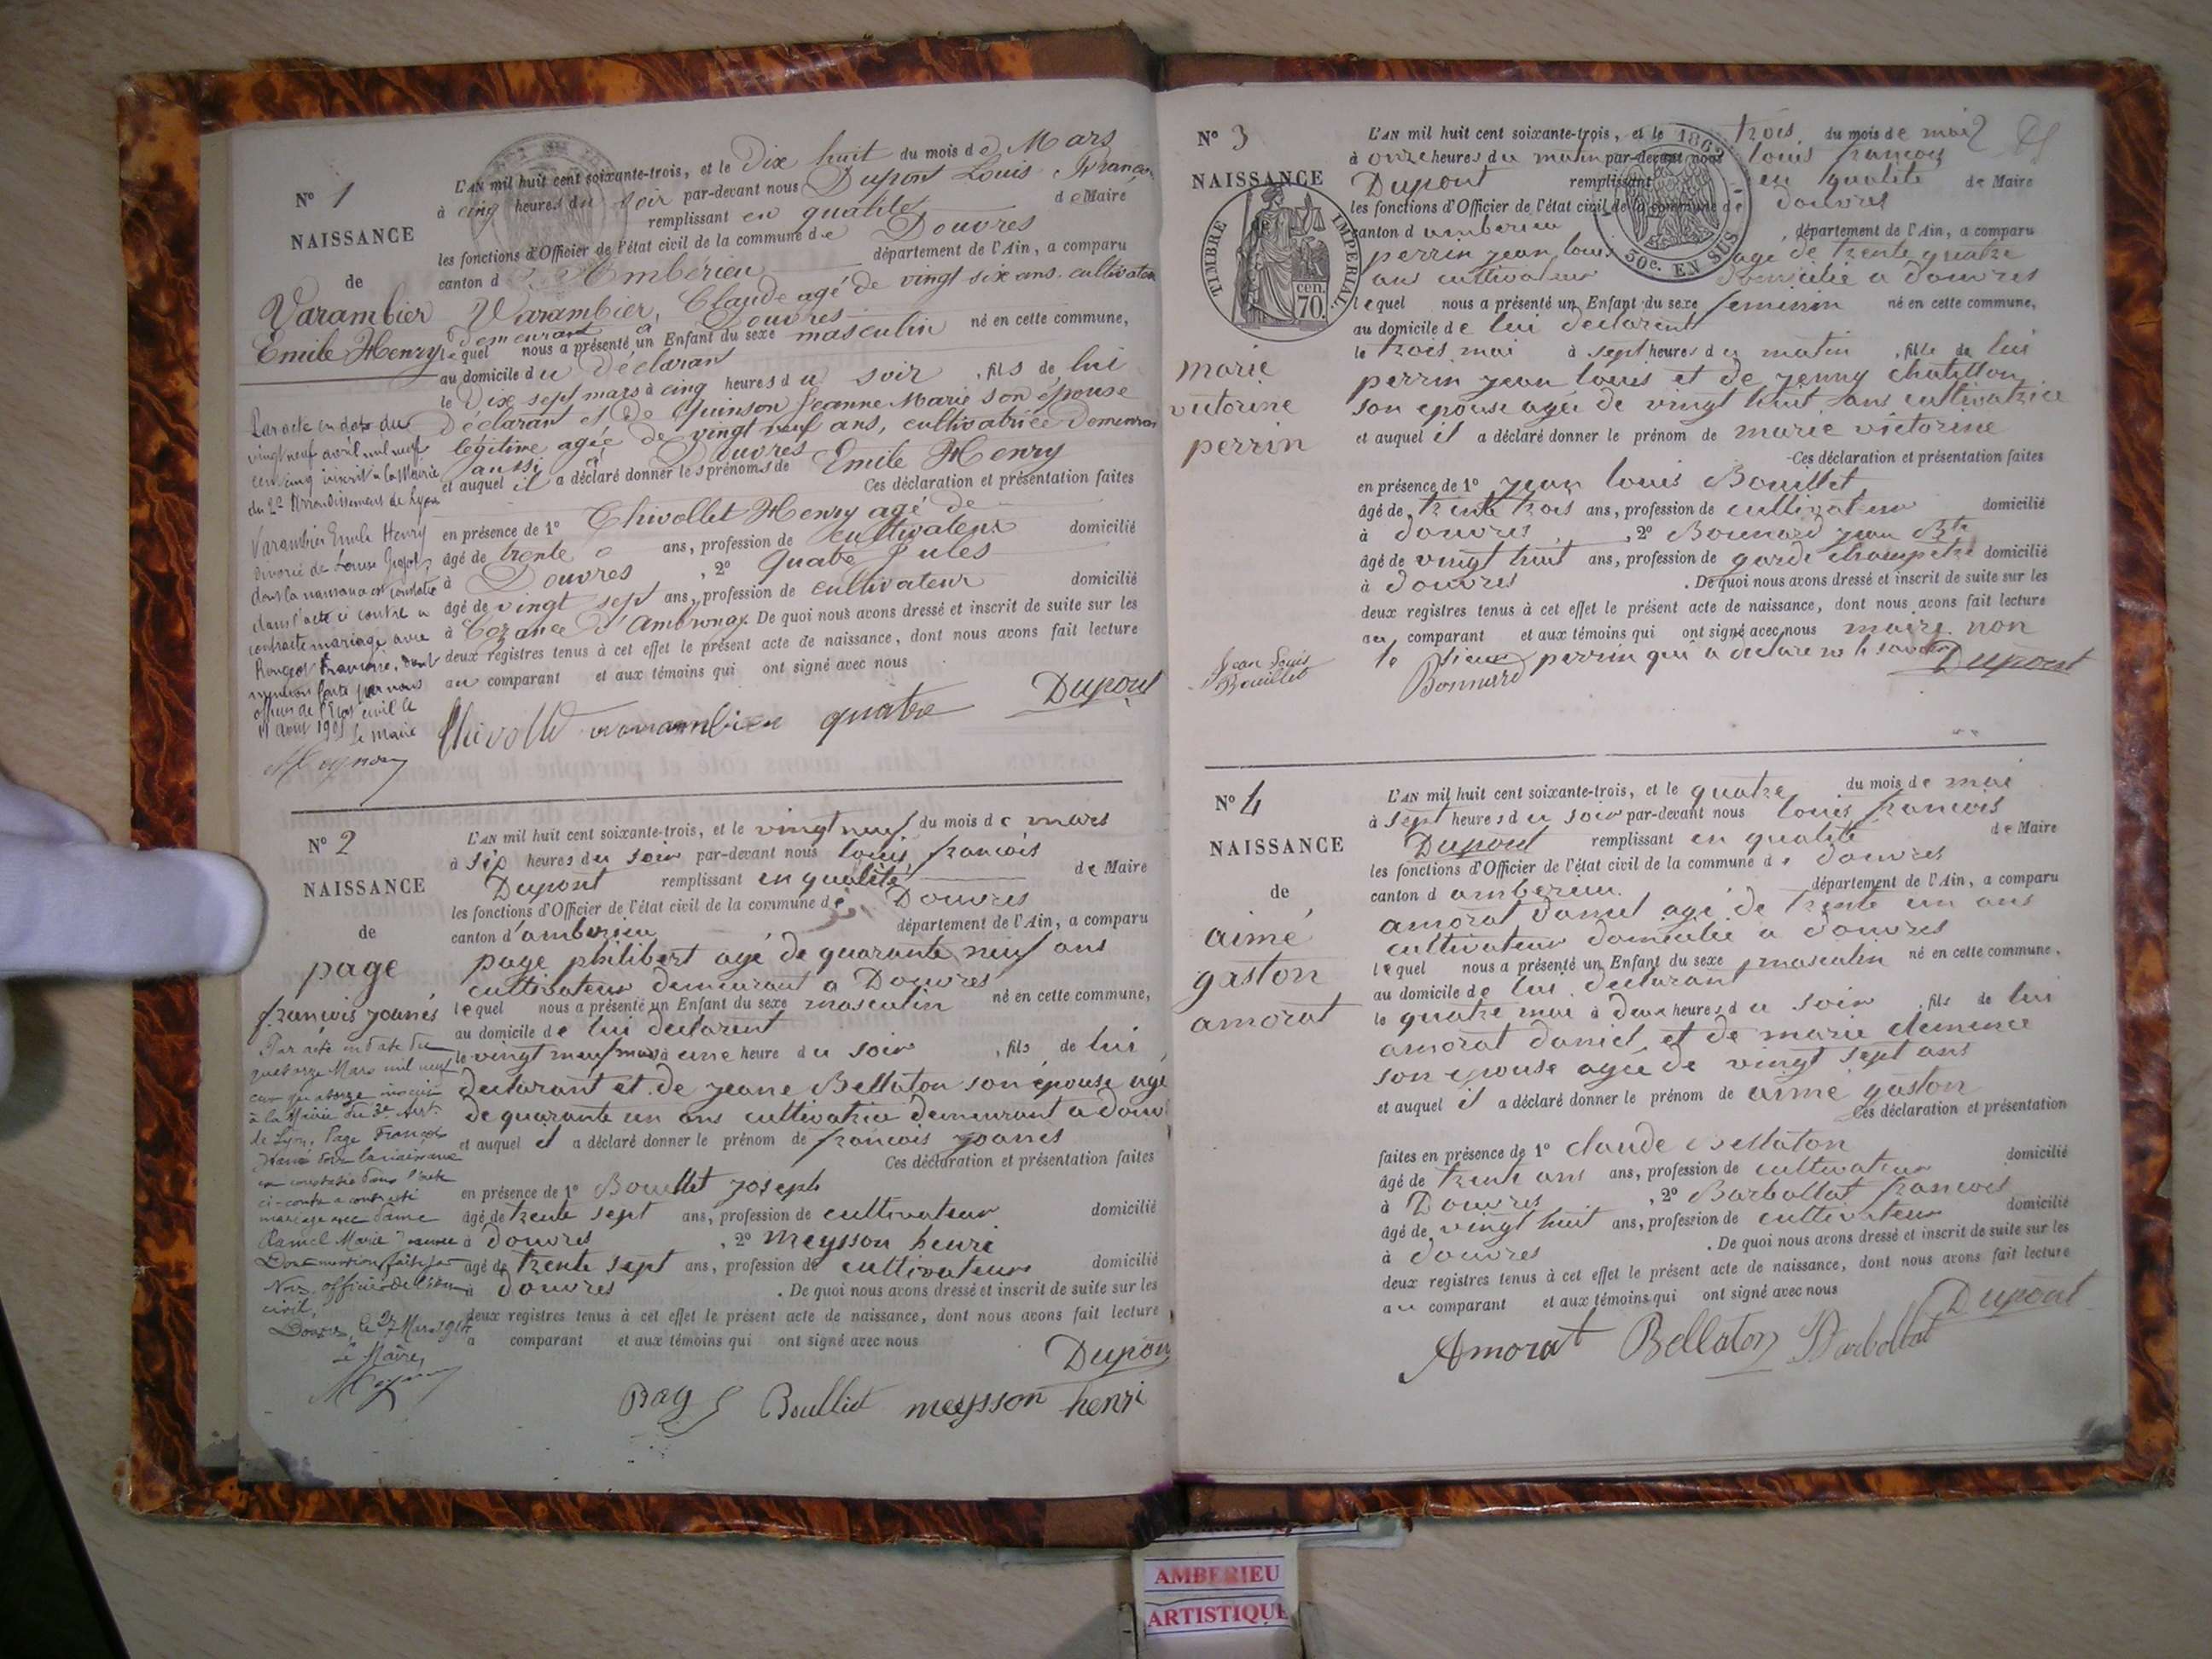 N° 1
NAISSANCE
de
Varambier
Emile Henry
L'AN mil huit cent soixante-trois, et le Dix huit du mois de Mars
à cinq heures du soir par-devant nous Dupont Louis Françoi
remplissant en qualité de Maire
les fonctions d'Officier de l'état civil de la commune de Douvres
canton d'Ambérieu département de l'Ain, a comparu
Varambier, Claude agé de vingt six ans cultivateur
demeurant à Douvres
lequel nous a présenté un Enfant du sexe masculin né en cette commune,
au domicile du déclarant
le Dix sept mars à cinq heures du soir, fils de lui
Déclarant et de Quinson Jeanne Marie son épouse
légitime agée de vingt neuf ans, cultivatrice demeuran
aussi à Douvres
et auquel il a déclaré donner les prénoms de Emile Henry
Ces déclaration et présentation faites
en présence de 1° Chivollet Henry agé de
âgé de trente ans, profession de cultivateur domicilié
à Douvres, 2° Quatre Jules
âgé de vingt sept ans, profession de cultivateur domicilié
à d'Ambronay. De quoi nous avons dressé et inscrit de suite sur les
deux registres tenus à cet effet le présent acte de naissance, dont nous avons fait lecture
au comparant et aux témoins qui ont signé avec nous
Dupont
Chivollet varambier quatre
Par acte en date du
vingt neuf avril mil neuf
cent cinq inscrit à la Mairie
du 2e Arrondissement de Lyon
Varambier Emile Henry
divorcé de Louise
dont la naissance est constatée
dans l'acte ci contre a
contracté mariage avec
dont
mention faite par nous
officier de l'Etat civil le
1905 Le maire
N° 2
NAISSANCE
de
page
françois joanés
L'AN mil huit cent soixante-trois, et le vingt neuf du mois de mars
à six heures du soir par-devant nous louis françois
Dupont remplissant en qualité de Maire
les fonctions d'Officier de l'état civil de la commune de Douvres
canton d'amberieu département de l'Ain, a comparu
page philibert agé de quarante neuf ans
cultivateur demeurant a Douvres
lequel nous a présenté un Enfant du sexe masculin né en cette commune,
au domicile de lui declarent
le vingt neuf mars à une heure du soir, fils de lui
declarant et de jeane Bellaton son épouse age
de quarante un ans cultivatrice demeurant a douv
et auquel il a déclaré donner le prénom de françois joanes
Ces déclaration et présentation faites
en présence de 1° Bouillet joseph
âgé de trente sept ans, profession de cultivateur domicilié
à douvres, 2° meysson henri
âgé de trente sept ans, profession de cultivateur domicilié
à douvres. De quoi nous avons dressé et inscrit de suite sur les
deux registres tenus à cet effet le présent acte de naissance, dont nous avons fait lecture
a comparant et aux témoins qui ont signé avec nous
Dupon
Bouillet meysson henri
Par acte en date du
quatorze Mars mil neuf
cent quatorze inscrit
à la Mairie du 3e Arrt
de Lyon, Page François
dont la naissance
est constatée dans l'acte
ci-contre a contracté
mariage avec dame
Ramel Marie
Dont mention faite par
Nous officier de l'état
civil,
Douvres, le 27 Mars 1914
Le Maire,
N° 3
NAISSANCE
de
marie
victorine
perrin
TIMBRE IMPERIAL
cen. 70.
1862
50c. EN SUS
L'AN mil huit cent soixante-trois, et le trois du mois de mai
à onze heures du matin par-devant nous louis françois
Dupont remplissant en qualité de Maire
les fonctions d'Officier de l'état civil de la commune de douvres
canton d amberieu département de l'Ain, a comparu
perrin jean louis agé de trente quatre
ans cultivateur domicilié a douvres
lequel nous a présenté un Enfant du sexe feminin né en cette commune,
au domicile de lui declarent
le trois mai à sept heures du matin, fille de lui
perrin jean louis et de jenny chatillon
son epouse agée de vingt huit ans cultivatrice
et auquel il a déclaré donner le prénom de marie victorine
Ces déclaration et présentation faites
en présence de 1° jean louis Bouillet
âgé de trente trois ans, profession de cultivateur domicilié
à douvres, 2° Bonnard jean Bte
âgé de vingt huit ans, profession de garde champetre domicilié
à douvres. De quoi nous avons dressé et inscrit de suite sur les
deux registres tenus à cet effet le présent acte de naissance, dont nous avons fait lecture
au comparant et aux témoins qui ont signé avec nous maire non
le sieur perrin qui a declaré ne le savoir
Dupont
Jean Louis
Bouillet
Bonnard
N° 4
NAISSANCE
de
aimé
gaston
amorat
L'AN mil huit cent soixante-trois, et le quatre du mois de mai
à sept heures du soir par-devant nous louis françois
Dupont remplissant en qualité de Maire
les fonctions d'Officier de l'état civil de la commune de douvres
canton d amberieu département de l'Ain, a comparu
amorat daniel agé de trente un ans
cultivateur domicilié a douvres
lequel nous a présenté un Enfant du sexe masculin né en cette commune,
au domicile de lui declarant
le quatre mai à deux heures du soir, fils de lui
amorat daniel et de marie clemence
son epouse agée de vingt sept ans
et auquel il a déclaré donner le prénom de aimé gaston
Ces déclaration et présentation
faites en présence de 1° claude Bellaton
âgé de trente ans ans, profession de cultivateur domicilié
à Douvres, 2° Barbollat françois
âgé de vingt huit ans, profession de cultivateur domicilié
à douvres. De quoi nous avons dressé et inscrit de suite sur les
deux registres tenus à cet effet le présent acte de naissance, dont nous avons fait lecture
au comparant et aux témoins qui ont signé avec nous
Dupont
Amorat Bellaton Barbollat
AMBERIEU
ARTISTIQUE